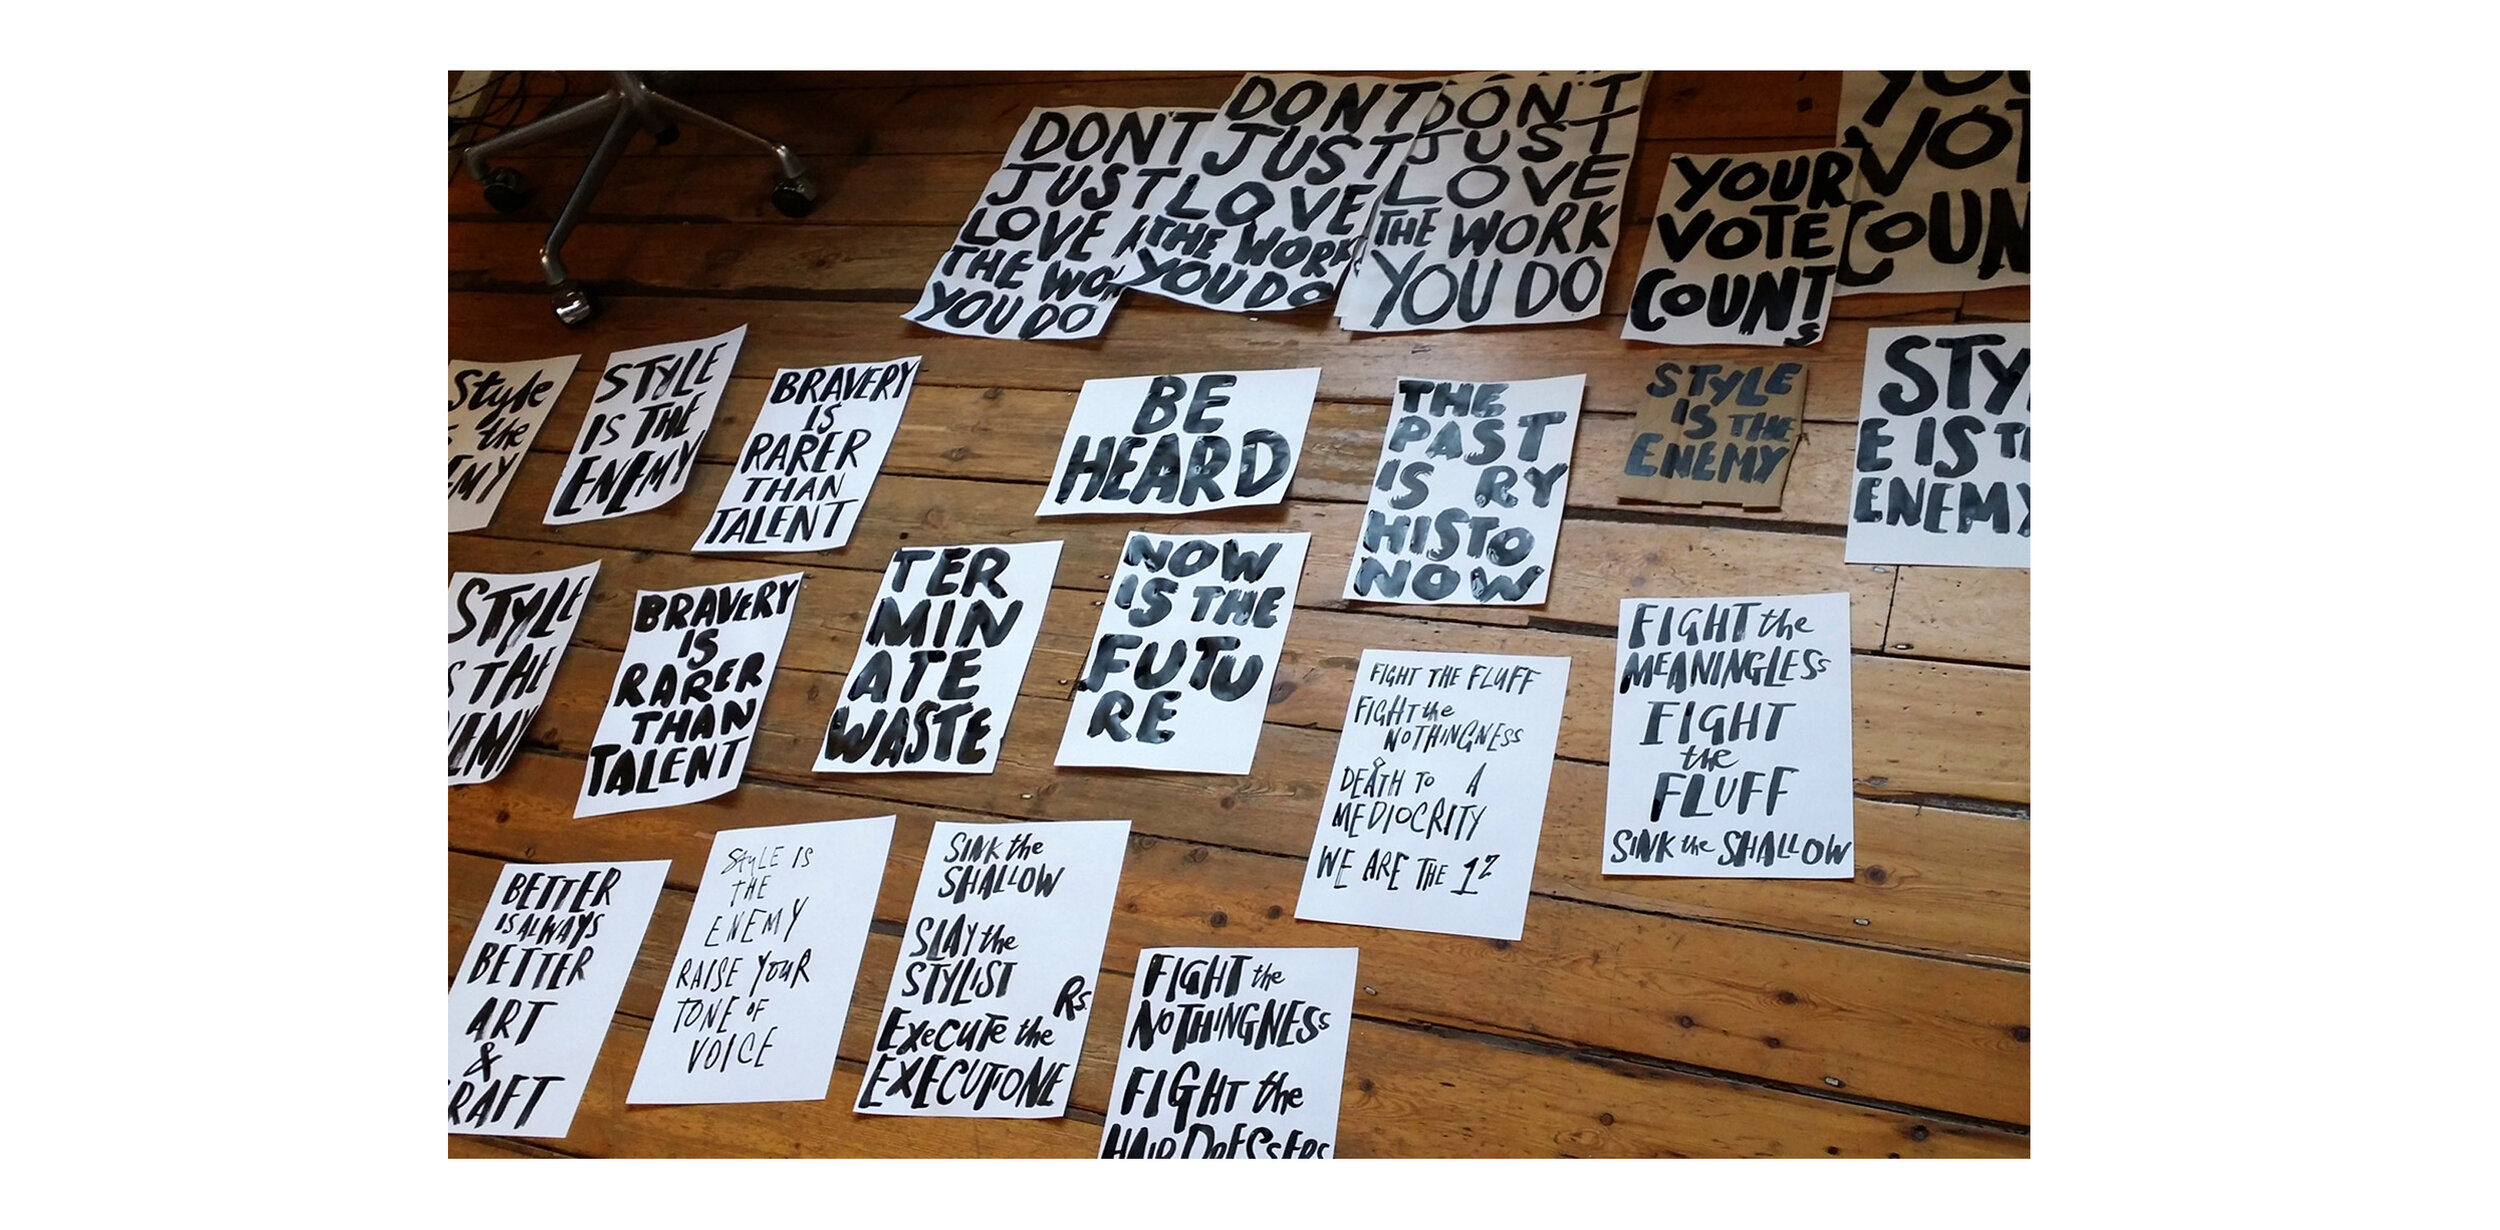 DON'T
JUST
LOVE
THE WO
YOU DO
DONT
JUST
LOVE
THE WORK
YOU DO
DON'T
JUST
LOVE
THE WORK
YOU DO
YOUR
VOTE
COUNTS
YOU
VOT
COUN
Style
the
EMY
STYLE
IS THE
ENEMY
BRAVERY
IS
RARER
THAN
TALENT
BE
HEARD
THE
PAST
IS RY
HISTO
NOW
STYLE
IS THE
ENEMY
STY
E IS T
ENEMY
STYLE
IS THE
NEMY
BRAVERY
IS
RARER
THAN
TALENT
TER
MIN
ATE
WASTE
NOW
IS THE
FUTU
RE
FIGHT THE FLUFF
FIGHT the
NOTHINGNESS
DEATH TO A
MEDIOCRITY
WE ARE THE 1%
FIGHT the
MEANINGLESS
FIGHT
the
FLUFF
SINK the SHALLOW
BETTER
IS ALWAYS
BETTER
ART
&
RAFT
STYLE IS
THE
ENEMY
RAISE YOUR
TONE OF
VOICE
SINK the
SHALLOW
SLAY the
STYLIST
EXECUTE the
EXECUTIONERS
FIGHT the
NOTHINGNESS
FIGHT the
HAIRDRESSERS